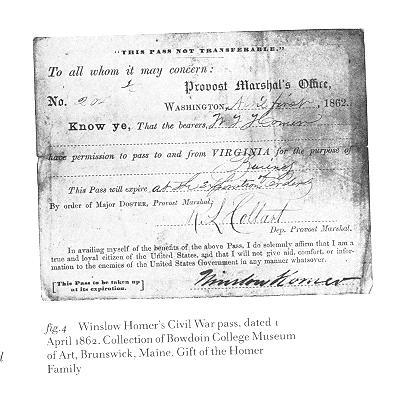 "THIS PASS NOT TRANSFERABLE."
To all whom it may concern:
Provost Marshal's Office,
No.
WASHINGTON, 1862.
Know ye, That the bearers,
have permission to pass to and from VIRGINIA for the purpose of
This Pass will expire at the expiration of orders
By order of Major DOSTER, Provost Marshal;
Dep. Provost Marshal.
In availing myself of the benefits of the above Pass, I do solemnly affirm that I am a
true and loyal citizen of the United States, and that I will not give aid, comfort, or infor-
mation to the enemies of the United States Government in any manner whatsoever.
[This Pass to be taken up
at its expiration.]
Winslow Homer
fig.4 Winslow Homer's Civil War pass, dated 1
April 1862. Collection of Bowdoin College Museum
of Art, Brunswick, Maine. Gift of the Homer
Family